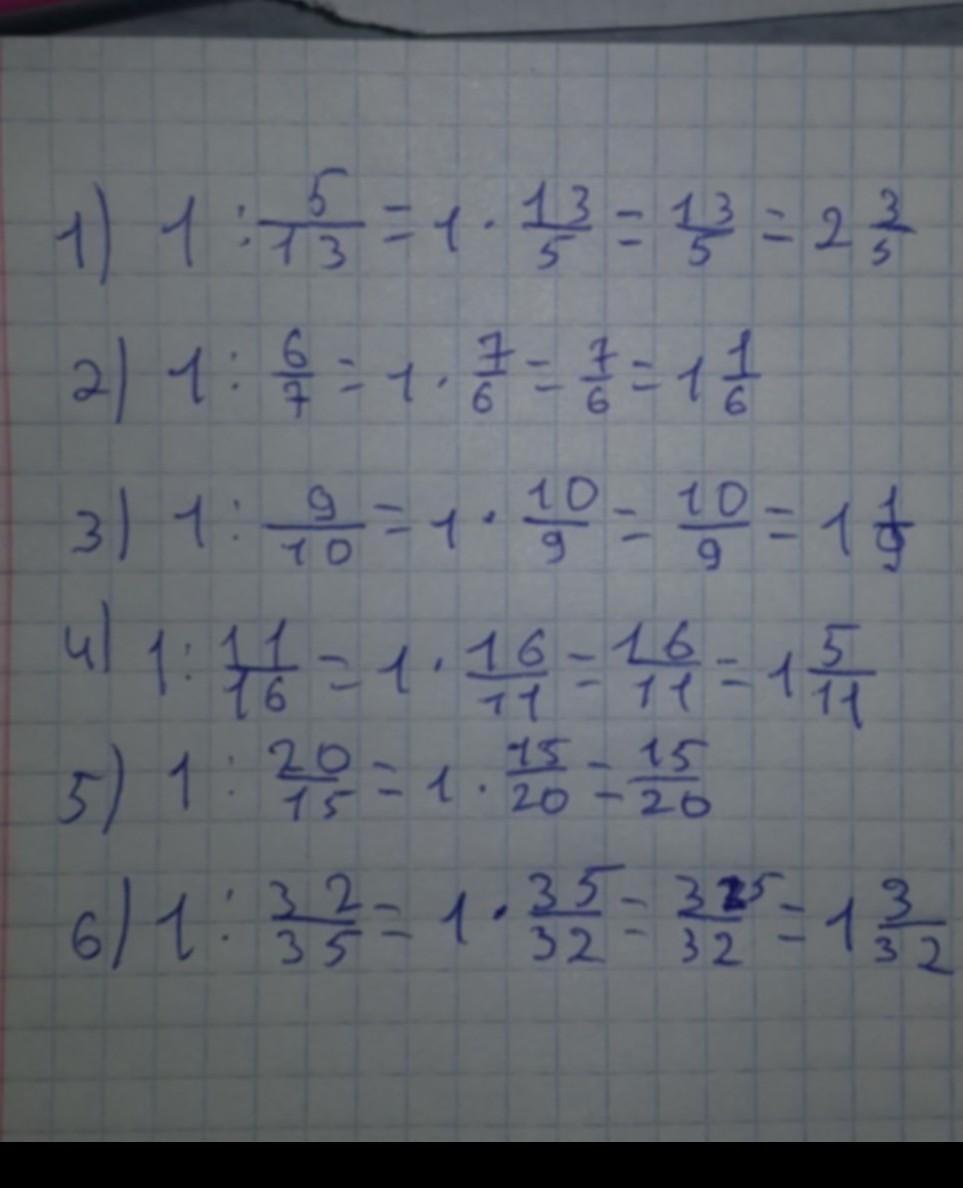 1) 1 : 5/13 = 1 · 13/5 = 13/5 = 2 3/5
2) 1 : 6/7 = 1 · 7/6 = 7/6 = 1 1/6
3) 1 : 9/10 = 1 · 10/9 = 10/9 = 1 1/9
4) 1 : 11/16 = 1 · 16/11 = 16/11 = 1 5/11
5) 1 : 20/15 = 1 · 15/20 = 15/20
6) 1 : 32/35 = 1 · 35/32 = 35/32 = 1 3/32